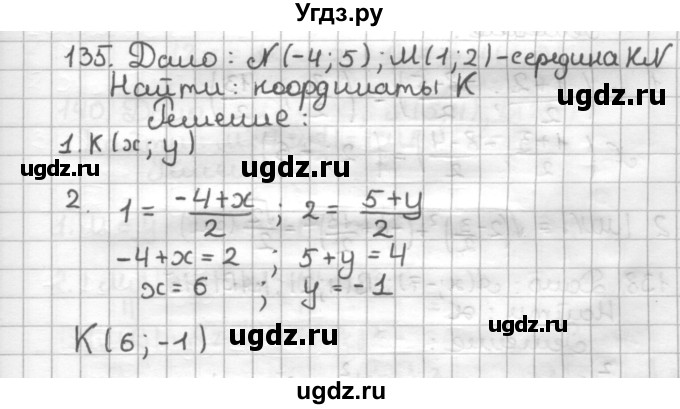 Угдз.ру
135. Дано: N(-4; 5); M(1; 2) - середина KN
Найти: координаты K
Решение:
1. K(x; y)
2. 1 = (-4+x)/2 ; 2 = (5+y)/2
-4+x = 2 ; 5+y = 4
x = 6 ; y = -1
K(6; -1)
ugdz.ru
ugdz.ru
ugdz.ru
ugdz.ru
ugdz.ru
ugdz.ru
ugdz.ru
ugdz.ru
ugdz.ru
ugdz.ru